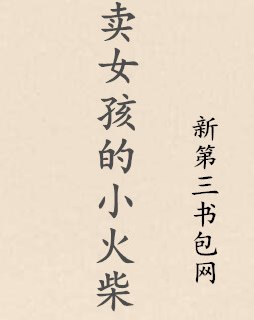 卖女孩的小火柴
新第三书包网